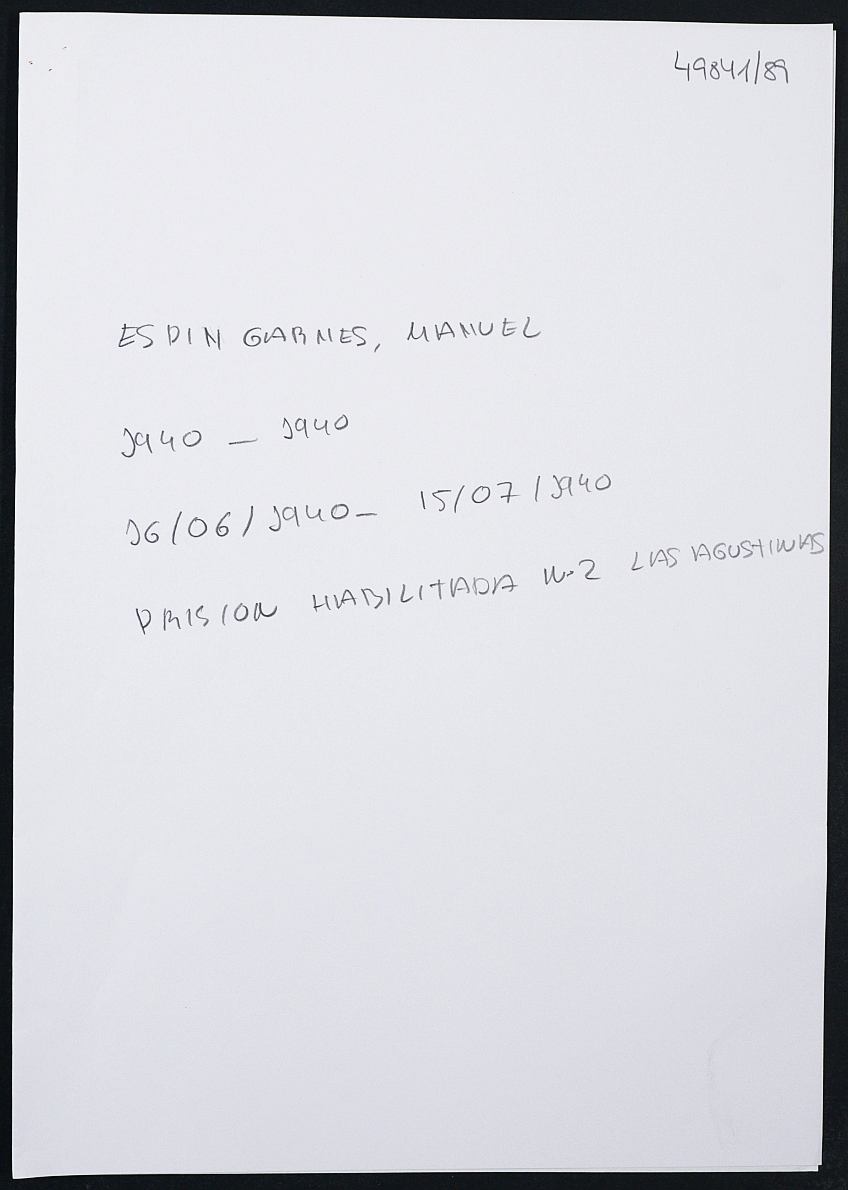 49841/89
ESPIN GARNES, MANUEL
1940 - 1940
16/06/1940 - 15/07/1940
PRISION HABILITADA N.2 LAS AGUSTINAS